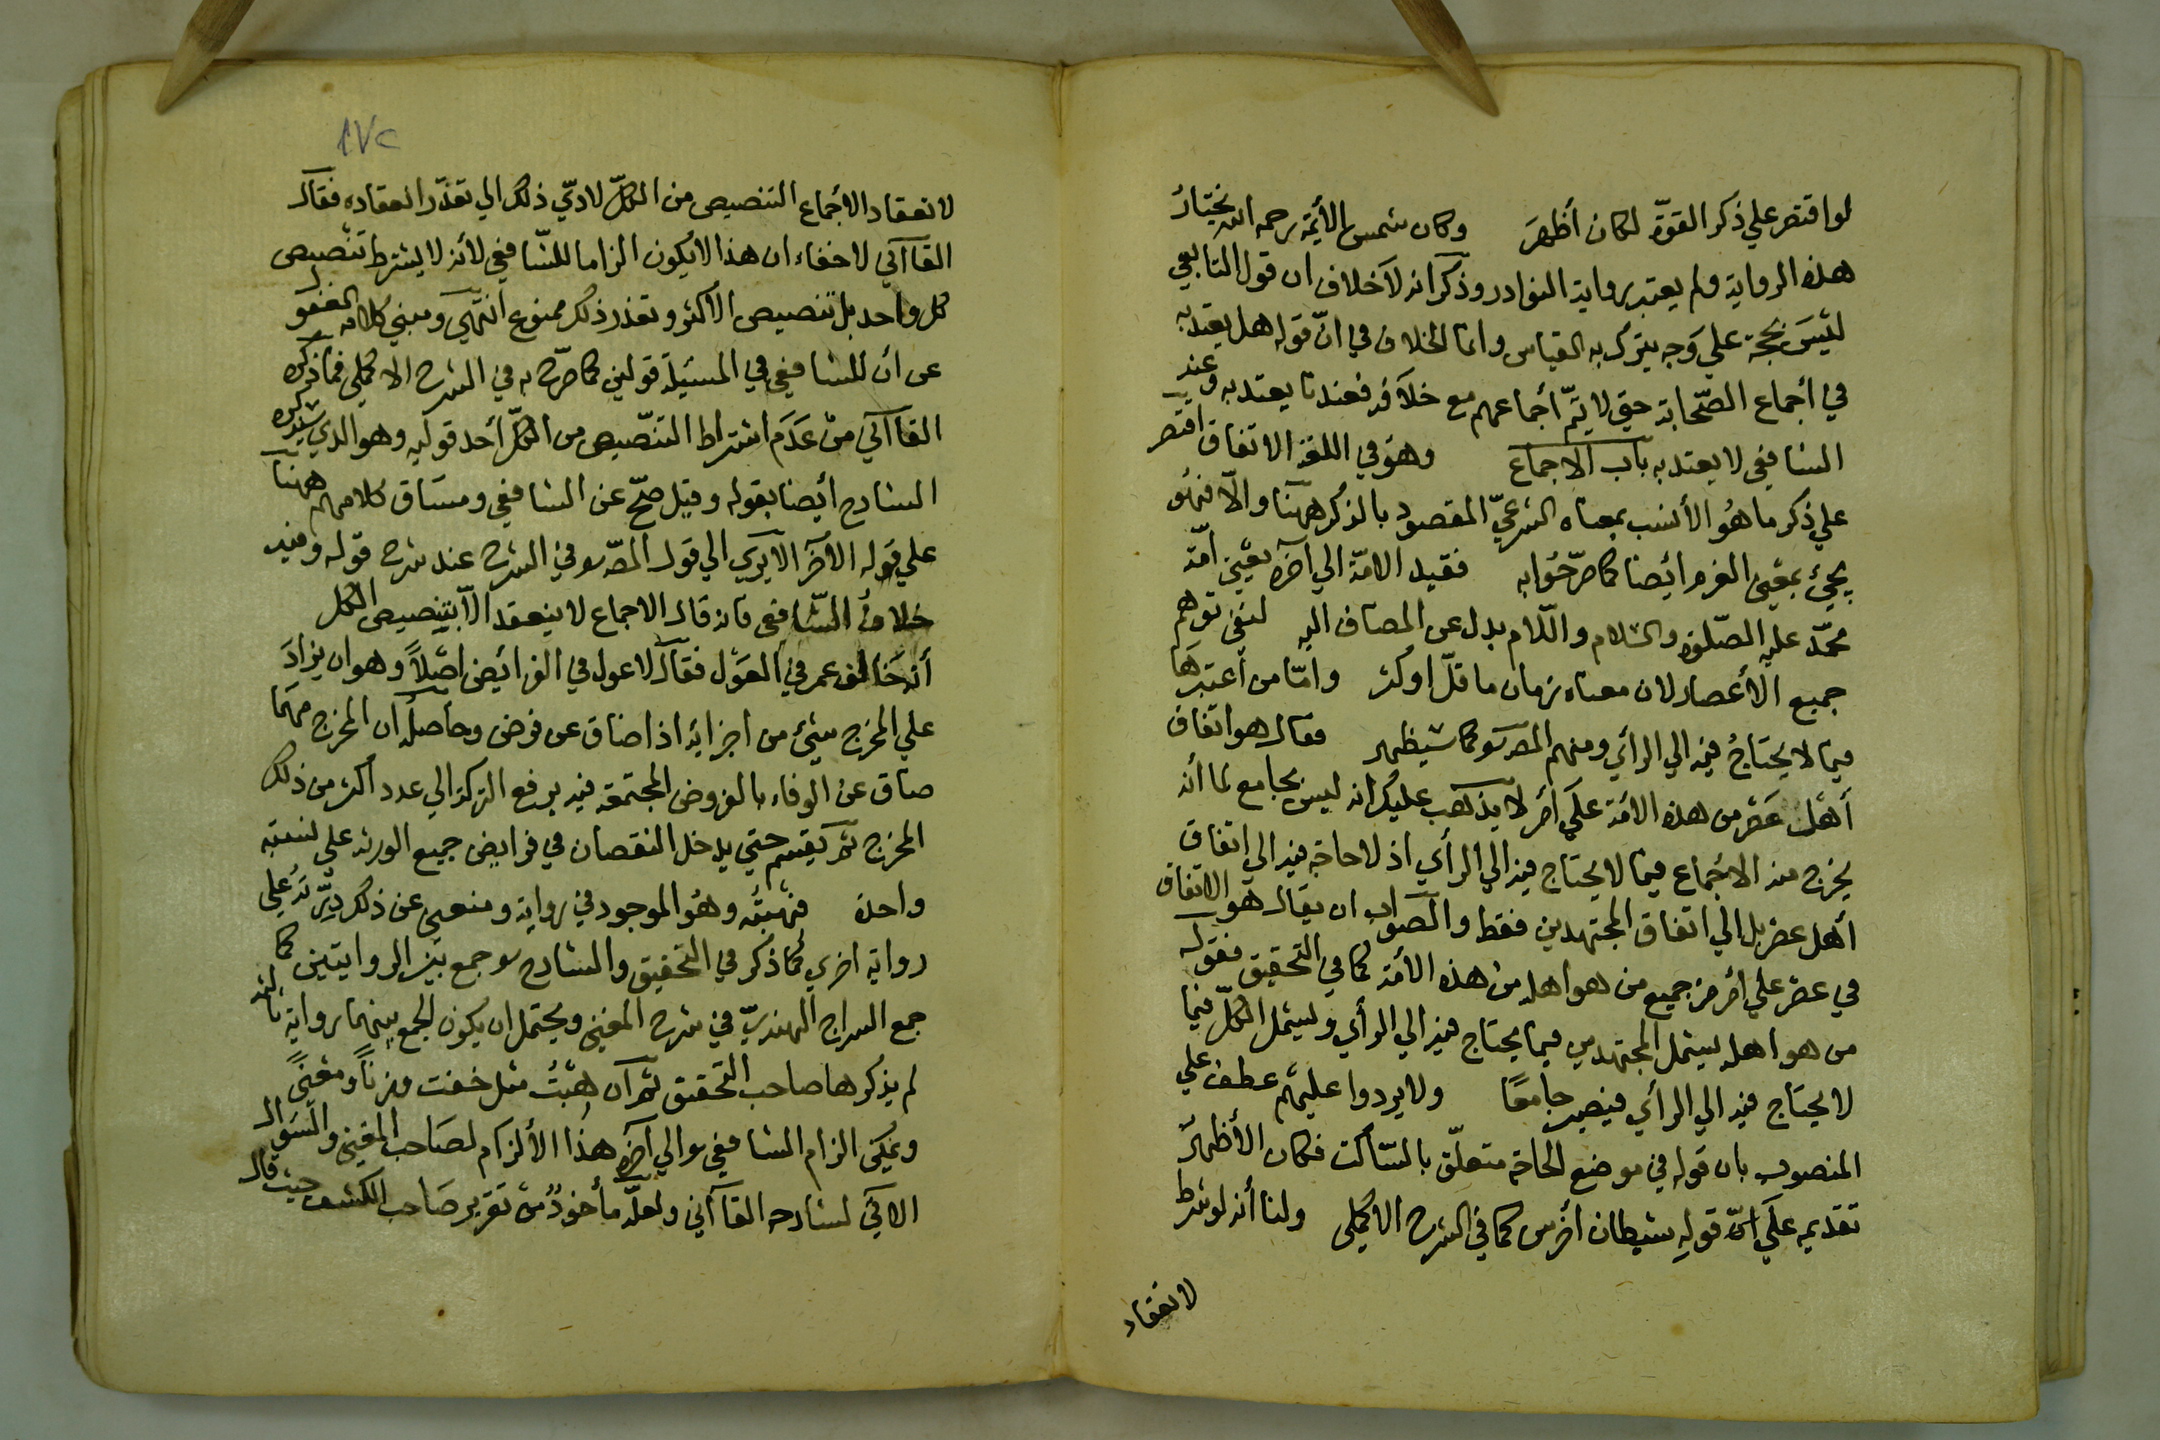 لو اقتصر علي ذكر القوّة لكان أظهرَ وكان شمس الأئمّة رحمه الله يختارُ
هذه الرواية ولم يعتبر رواية النوادر وذكر انه لا خلاف ان قول التابعي
ليسَ بحجّة علي وَجه يترك به القياس وانما الخلاف في انّ قوله هل يعتدّ به
في أجماع الصّحابة حتي لا يتمّ أجماعهم مع خلافه فعندنا يعتد به وعند
الشافعي لا يعتد به باب الاجماع وهو في اللغة الاتفاق اقتصر
علي ذكر ما هُو الأنسب بمعناه الشرعيّ المقصود بالذكر ههنا والّا فهُو
يجيئ بمعني العزم ايضا كما صرّحُوا به فقيد الامّة الي آخره يعني امّة
محمّد عليه الصّلوة والسّلام واللّام بدل عن المضاف اليه لنفي توهم
جميع الأعصار لان معناه زمان ما قلّ او كثر وامّا من اعتبرهَا
فيما لا يحتاجُ فيه الي الرأي ومنهم المصَر كما سَيظهر فقال هو اتفاق
أهْل عَصْر من هذه الامّة علَي أمر لا يذهب عليك انه ليس بجامع لما أنه
يخرج منه الاجماع فيما لا يحتاج فيه الي الرأي اذ لا حاجة فيه الي اتفاق
أهل عصر بل الي اتفاق المجتهدين فقط والصّواب ان يقال هو الاتفاق
في عصر علي أمر من جميع من هو اهله من هذه الأمّة كما في التحقيق فقوله
من هو اهله يشمل المجتهدين فيما يحتاج فيه الي الرأي ويشمل الكلّ فيما
لا يحتاج فيه الي الرأي فيصير جامعًا ولا يردوا عليهم عطف علي
المنصوب بان قوله في موضع الحاجة متعلّق بالسّاكت فكان الأظهرُ
تقديمه علَي انّ قوله شيطان أخرس كما في الشرح الاكملي ولنا أنه لو شرط
لانعقاد
١٧٢
لانعقاد الاجماع التنصيص من الكلّ لادّي ذلك الي تعذّر انعقاده فقال
القاآني لا خفاء ان هذا لا يكون الزاما للشّافعي لأنه لا يشترط تنصيص
كل واحد بل تنصيص الأكثر وتعذر ذلك ممنوع انتهي ومبني كلامه الغفول
عن أن للشافعي في المسئيلة قولين كما صرّح به في الشرح الاكملي فما ذكره
القاآني منْ عَدَم اشتراط التنصّيص من الكلّ أحد قوليه وهو الذي سَيذكره
الشارح أيضا بقوله وقيل صحّ عن الشافعي ومسَاق كلامهم ههنا
علي قوله الآخر الا يري الي قول المصّر في الشرح عند شرح قوله وفيه
خلافُ الشّافعي فانه قال الاجماع لا ينعقد الّا بتنصيص الكل
أنه خَالف عمر في العَوْل فقال لا عول في الفرائض اصْلًا وهو ان يزادَ
علي المخرج شئ من اجزائه اذا ضاق عن فرض وحاصله ان المخرج مهمَا
ضاق عن الوفاء بالفروض المجتمعة فيه يرفع التركة الي عدد أكثر من ذلك
المخرج ثم يقيسم حتي يدخل النقصان في فرايض جميع الورثة علي نسبة
واحدة فهِبْتُه وهُو الموجود في رواية ومنعني عن ذلك دِرّتُه علي
رواية اخري كما ذكر في التحقيق والشارح جمع بَين الروايتين كما
جمع السراج الهنديّ في شرح المغني ويحتمل ان يكون الجمع بينهما رواية ثالثة
لم يذكرها صاحب التحقيق ثم ان هِبْتُ مثل خفت وزناً ومعنيً
ويمكن الزام الشافعي الي آخره هذا الألزام لصَاحب المغني والسّوال
الاتي لشارحه القاآني ولعلّه مأخوذ من تقرير صَاحب الكشف حيث قال